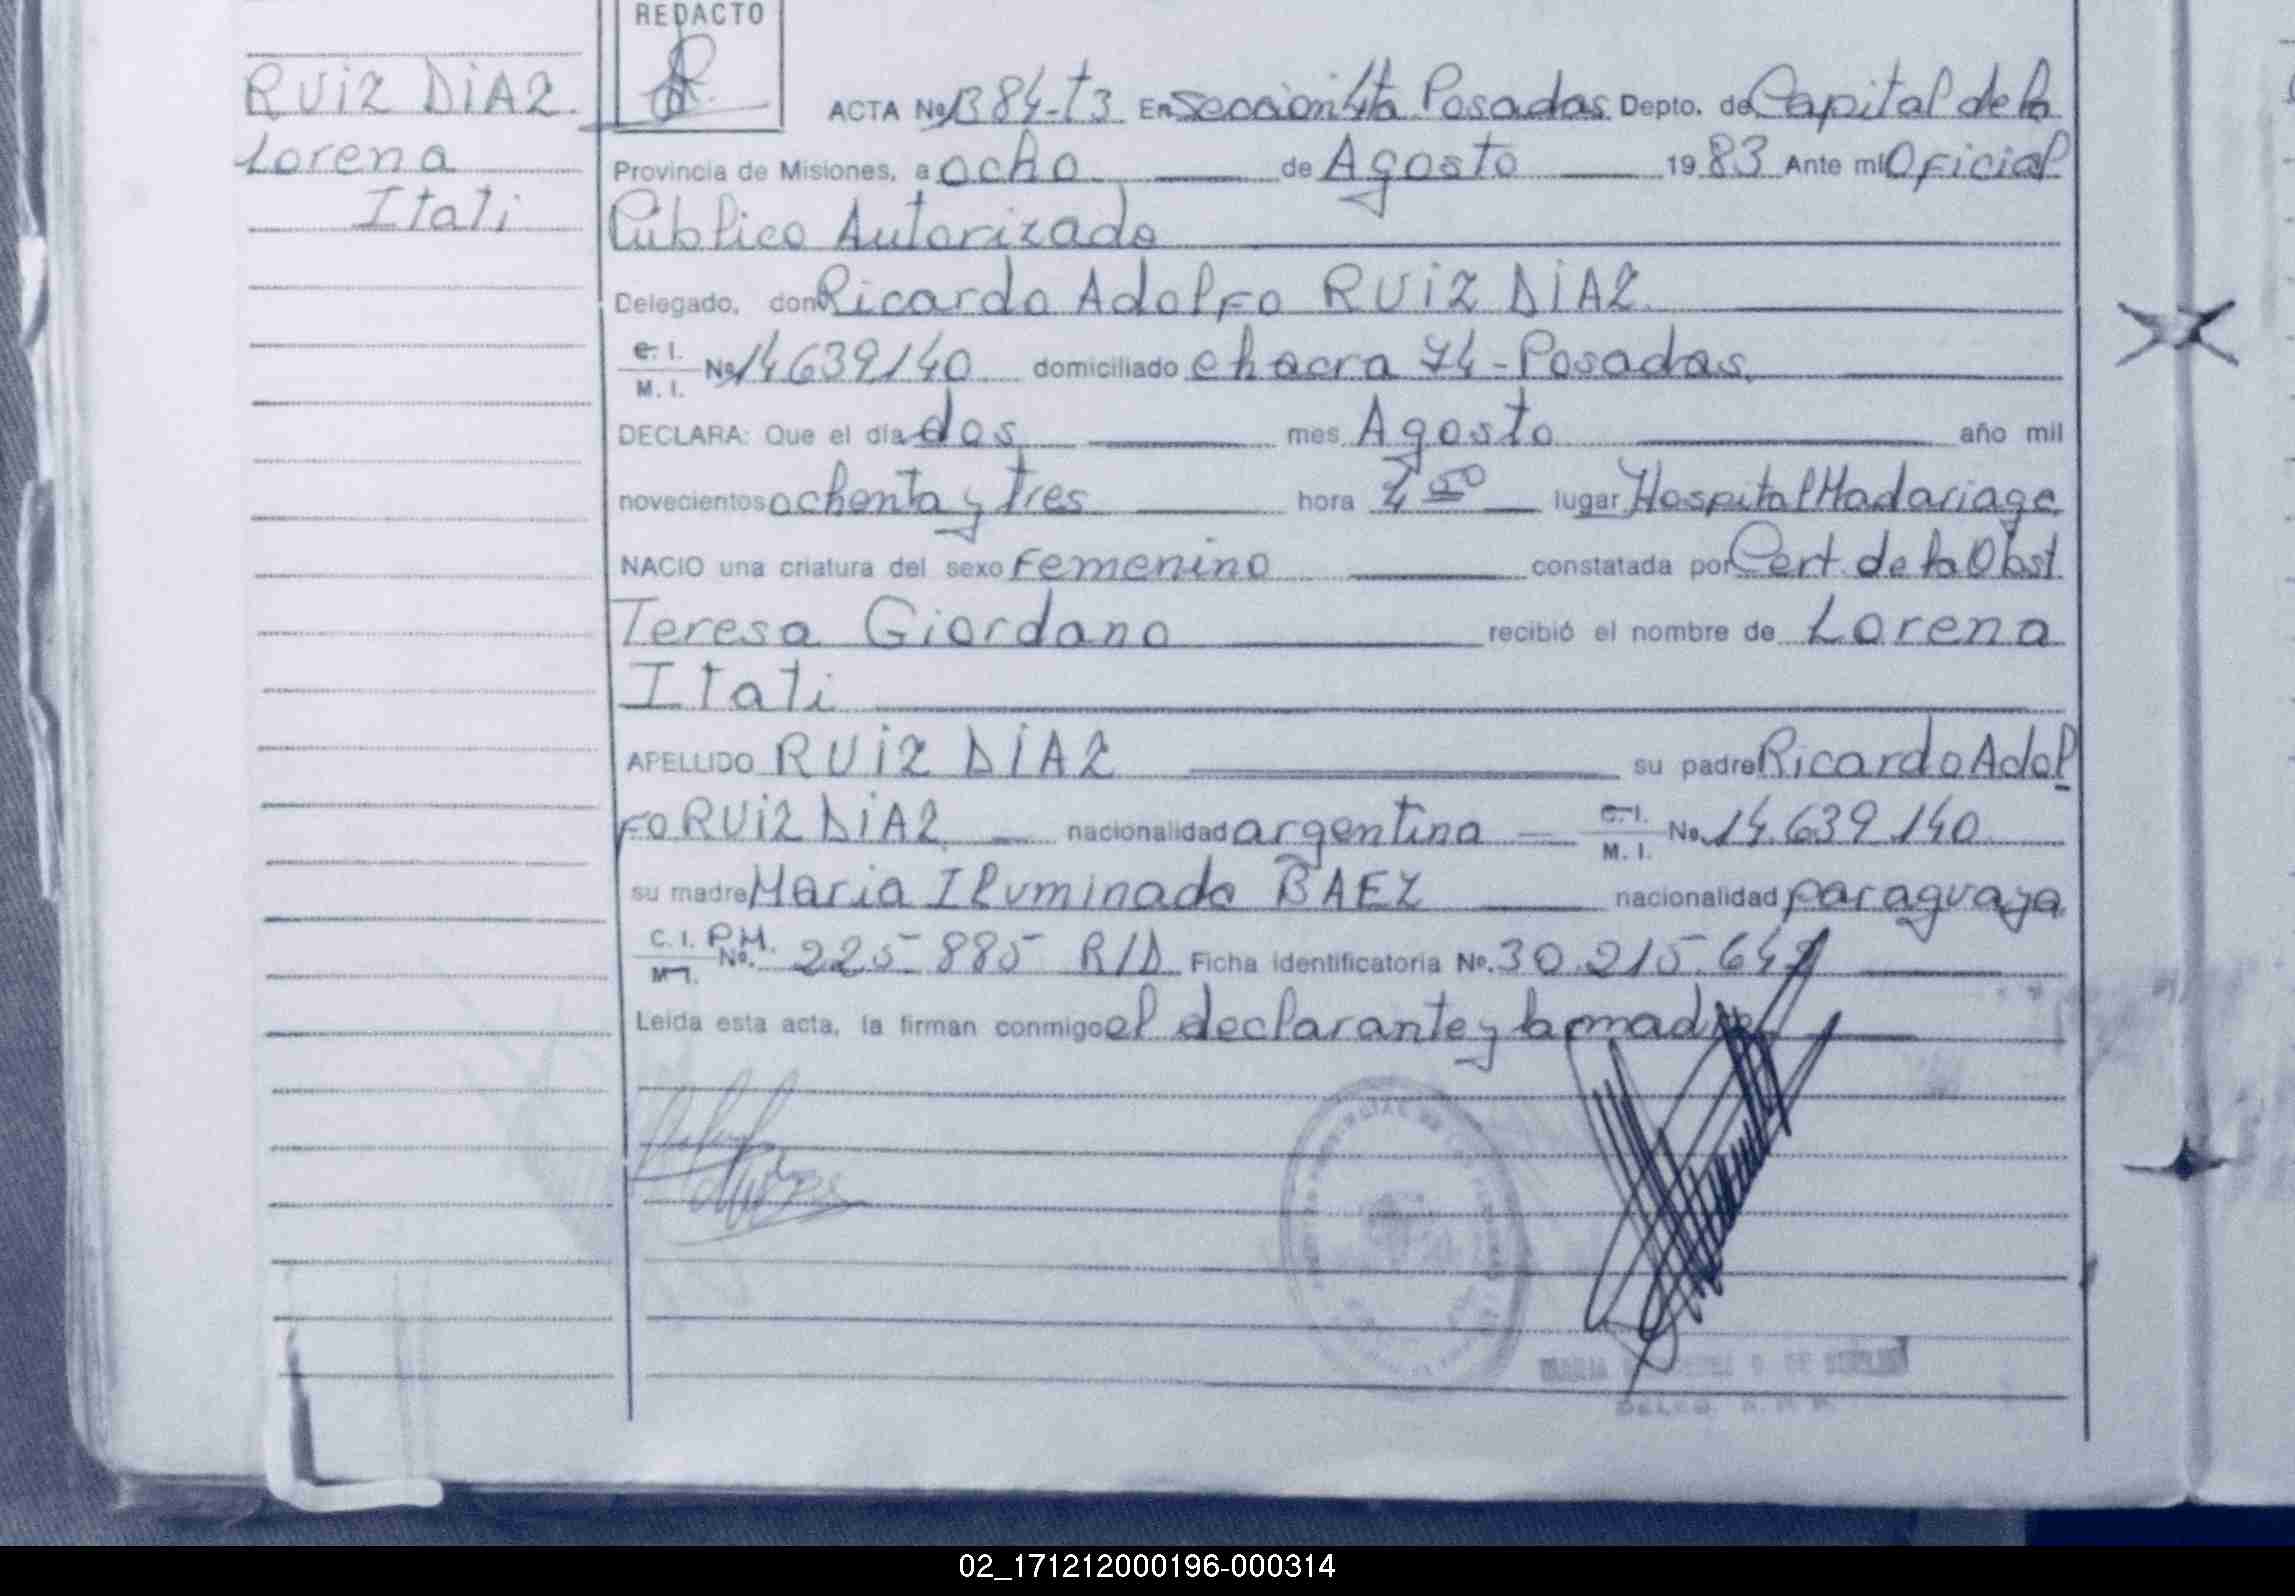 REDACTO
RUIZ DIAZ.
Lorena
Itati
ACTA Nº 1384-T3 En Sección 4ta Posadas Depto. de Capital de la
Provincia de Misiones, a ocho de Agosto 1983 Ante mi Oficial
Público Autorizado
Delegado, don Ricardo Adolfo RUIZ DIAZ.
C. I.
M. I. Nº 14639140 domiciliado chacra 74-Posadas.
DECLARA: Que el día dos mes Agosto año mil
novecientos ochenta y tres hora lugar Hospital Madariaga
NACIO una criatura del sexo Femenino constatada por Cert. de la Obst
Teresa Giordano recibió el nombre de Lorena
Itati
APELLIDO RUIZ DIAZ su padre Ricardo Adol
fo RUIZ DIAZ nacionalidad argentina C. I.
M. I. No. 14.639.140
su madre Maria Iluminada BAEZ nacionalidad paraguaya
C. I. P.M.
M. I. No. 225-885 R/D Ficha identificatoria Nº. 30.215.
Leida esta acta, la firman conmigo el declarante y la madre
02_171212000196-000314